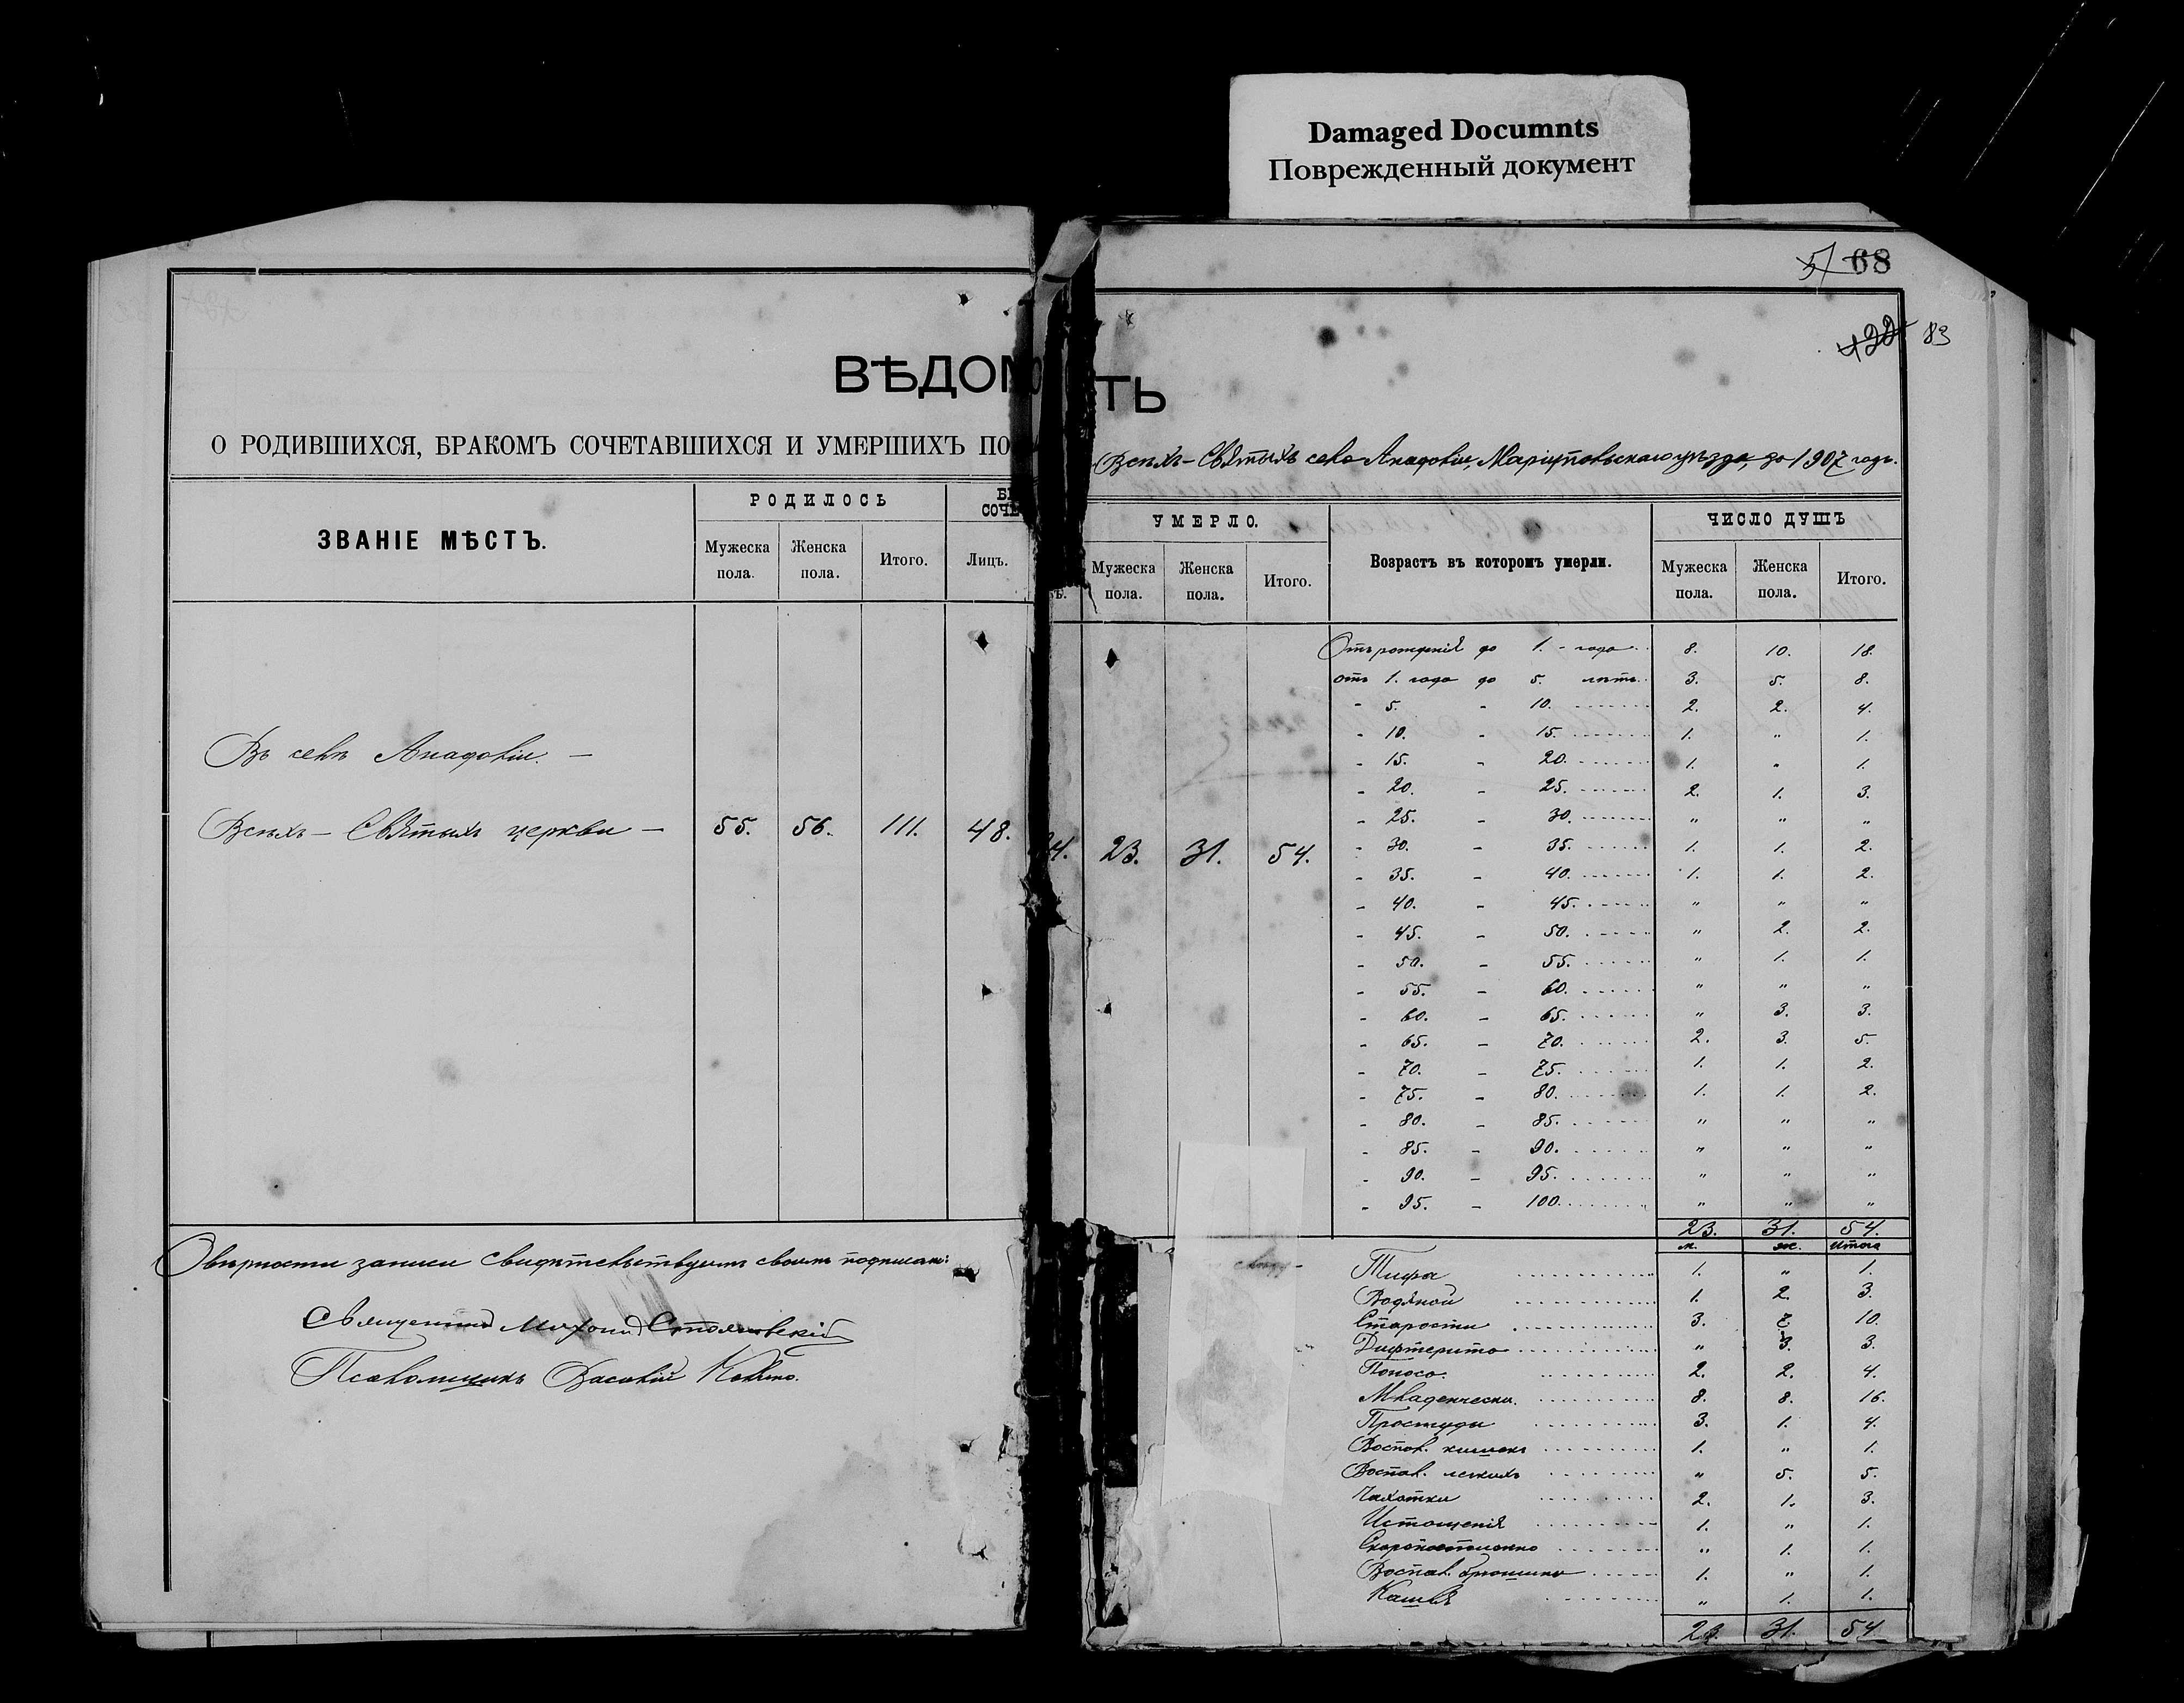 Damaged Documnts
Поврежденный документ
5/ 68
122 83
ВѢДОМО
ТЬ
О РОДИВШИХСЯ, БРАКОМЪ СОЧЕТАВШИХСЯ И УМЕРШИХЪ ПО
Всѣхъ-Святыхъ села Анадовіи, Маріупольскаго уѣзда, за 1907 годъ.
ЗВАНІЕ МѢСТЪ.
РОДИЛОСЬ
БР
СОЧЕ
Мужеска пола.
Женска пола.
Итого.
Лицъ.
Въ селѣ Анадовіи. —
Всѣхъ - Святыхъ церкви — 55. 56. 111. 48.
О вѣрности записи свидѣтельствуемъ своимъ подписомъ:
Священникъ Стояновскій
Псаломщикъ Василій
УМЕРЛО.
Возрастъ въ которомъ умерли.
ЧИСЛО ДУШЪ
Ъ.
Мужеска пола.
Женска пола.
Итого.
Мужеска пола.
Женска пола.
Итого.
4. 23. 31. 54.
Отъ рожденія до 1. - года 8. 10. 18.
отъ 1. года до 5. лѣтъ 3. 5. 8.
" 5. - 10. 2. 2. 4.
- 10. - 15. 1. " 1.
- 15. - 20. 1. " 1.
- 20. - 25. 2. 1. 3.
- 25. - 30. " " "
- 30. - 35. 1. 1. 2.
- 35. - 40. 1. 1. 2.
- 40. - 45. " " "
- 45. - 50. " 2. 2.
- 50. - 55. " 1. 1.
- 55. - 60. " " "
- 60. - 65. " 3. 3.
- 65. - 70. 2. 3. 5.
- 70. - 75. 1. 1. 2.
- 75. - 80. 1. 1. 2.
- 80. - 85. " " "
- 85. - 90. " " "
- 90. - 95. " " "
" 95. - 100. " " "
23. 31. 54.
м. ж. Итого
Тифа 1. " 1.
Водяной 1. 2. 3.
Старости 3. 7. 10.
Дифтерита " 3. 3.
Поноса. 2. 2. 4.
Младенчески. 8. 8. 16.
Простуды 3. 1. 4.
Воспал. кишекъ 1. " 1.
Воспал. легкихъ " 5. 5.
Чахотки 2. 1. 3.
Истощенія 1. " 1.
Скоропостижно " 1. 1.
Воспал. брюшины 1. " 1.
Кашля " 1. 1.
23. 31. 54